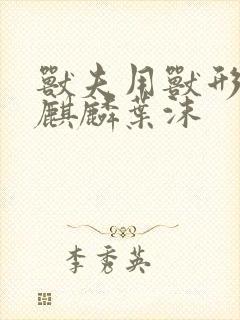 獸夫用獸形
麒麟葉沫
李秀英